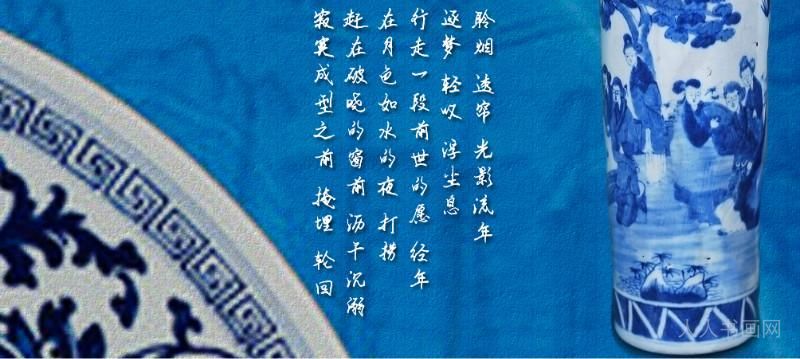 聆烟 透帘 光影流年
逐梦 轻叹 浮尘息
行走一段前世的愿 经年
在月色如水的夜 打捞
赶在破晓的窗前 沥干沉溺
寂寞成型之前 掩埋 轮回
人人书画网